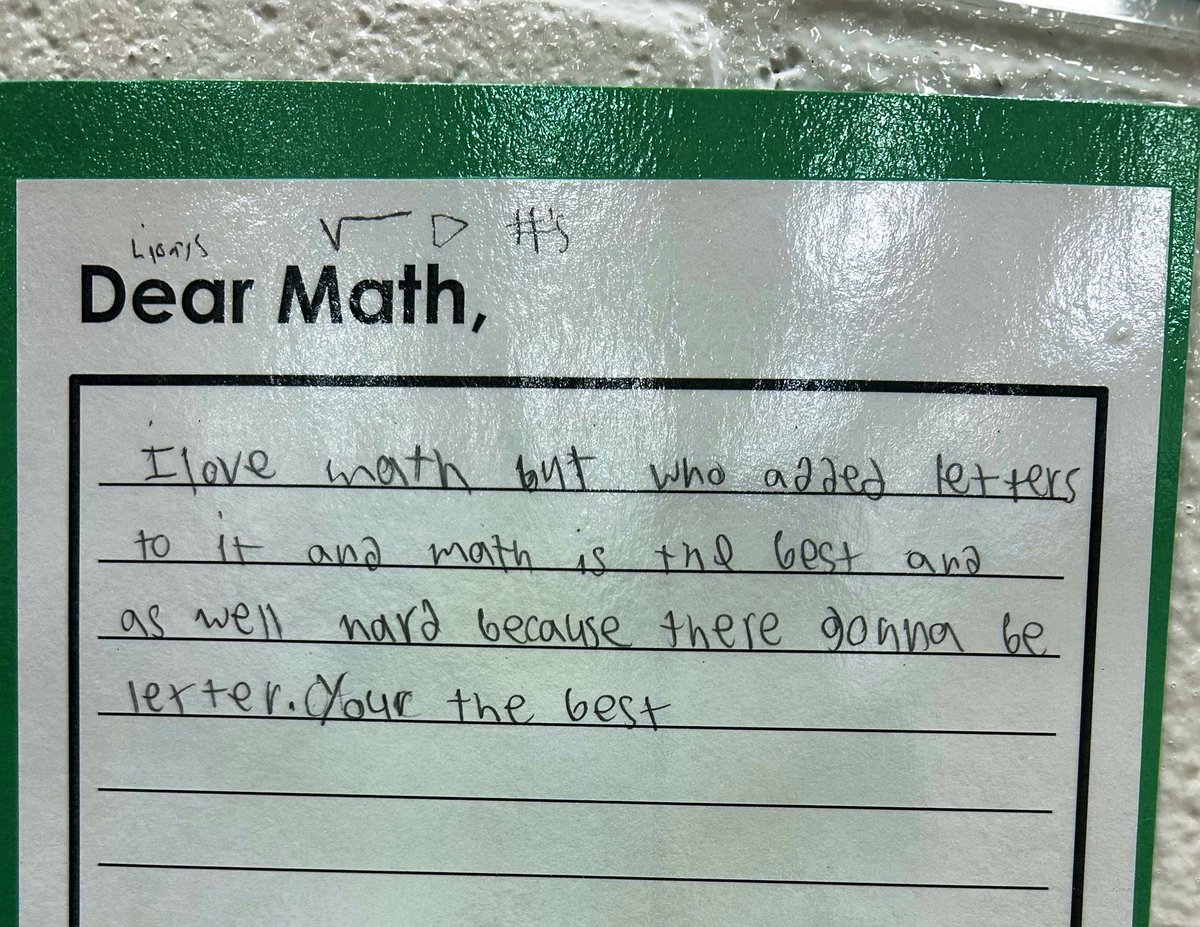 √ #'s
Dear Math,
I love math but who added letters
to it and math is the best and
as well hard because there gonna be
letter. Your the best